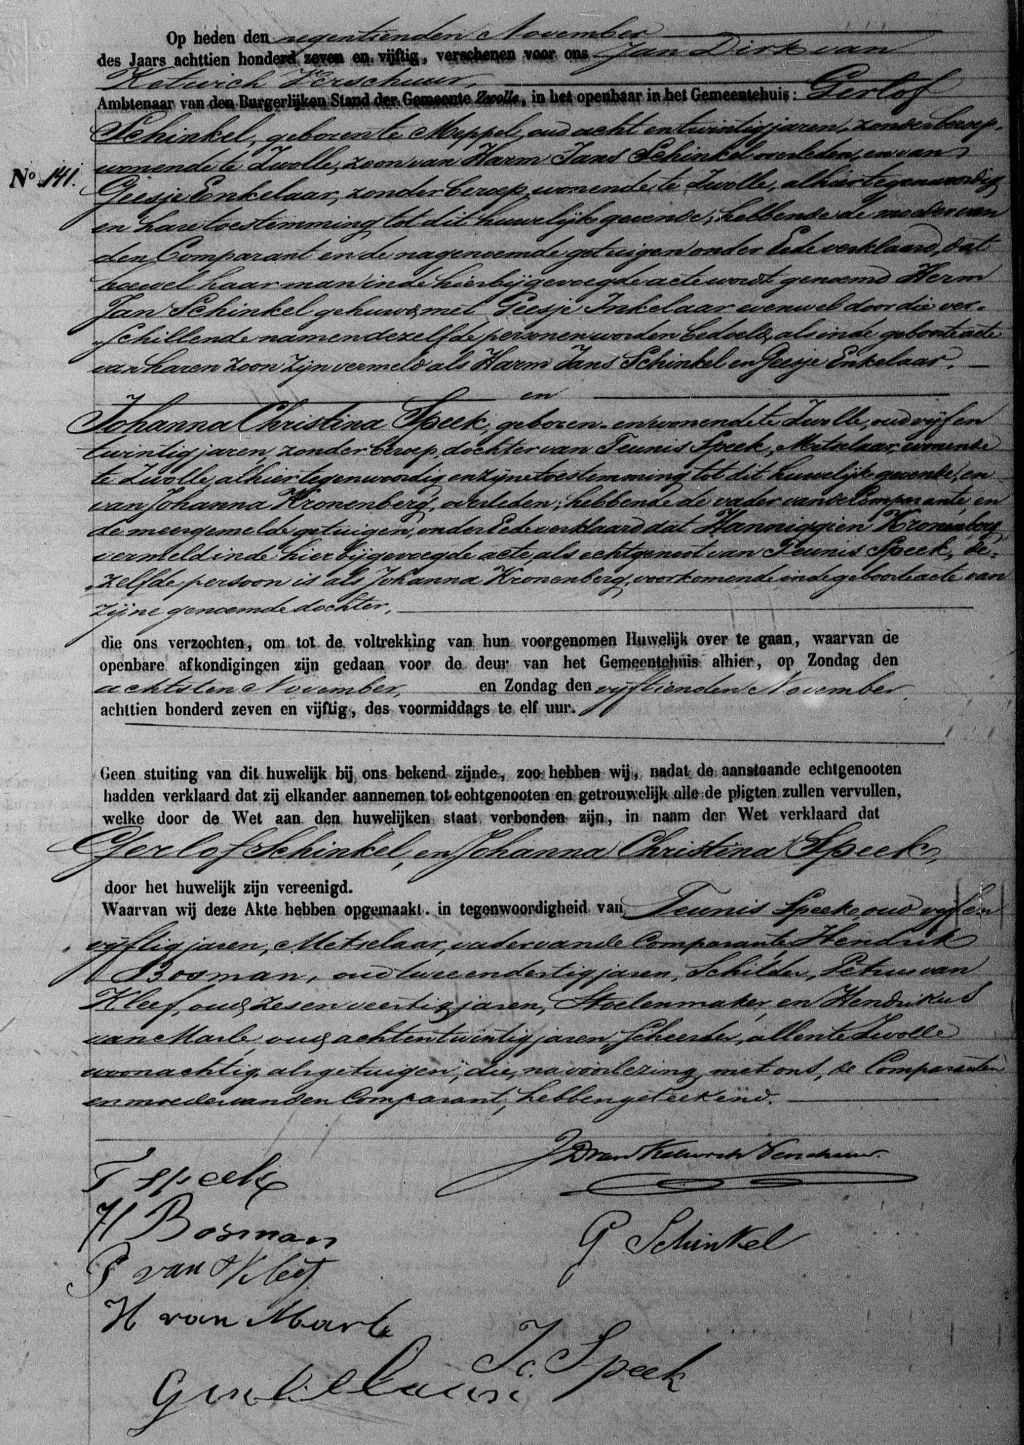 Op heden den negentienden November
des Jaars achttien honderd zeven en vijftig, verschenen voor ons Jan Dirk van
Ketwich Verschuur,
Ambtenaar van den Burgerlijken Stand der Gemeente Zwolle, in het openbaar in het Gemeentehuis: Gerlof
Schinkel, geboren te Meppel, oud acht en twintig jaren, zonder beroep,
No. 141. wonende te Zwolle, zoon van Harm Jans Schinkel overleden, en van
Geesje Enkelaar, zonder beroep, wonende te Zwolle, alhier tegenwoordig
en hare toestemming tot dit huwelijk gevende; hebbende de moeder van
den Comparant en de nagenoemde getuigen onder Eede verklaard, dat
hoewel haar man in de hierbij gevoegde acte wordt genoemd Herm
Jan Schinkel gehuwd met Geesje Inkelaar evenwel door die ver-
schillende namen dezelfde personen worden bedoeld, als in de geboorteacte
van haren zoon zijn vermeld als Harm Jans Schinkel en Geesje Enkelaar.
en
Johanna Christina Speek, geboren en wonende te Zwolle, oud vijf en
twintig jaren, zonder beroep, dochter van Teunis Speek, Metselaar, wonende
te Zwolle, alhier tegenwoordig en zijne toestemming tot dit huwelijk gevende, en
van Johanna Kronenberg, overleden; hebbende de vader van de Comparante, en
de meergemelde getuigen, onder Eede verklaard dat Hanniggien Kronenberg
vermeld in de hierbijgevoegde acte als echtgenoot van Teunis Speek, de-
zelfde persoon is als Johanna Kronenberg, voorkomende in de geboorteacte van
zijne genoemde dochter.
die ons verzochten, om tot de voltrekking van hun voorgenomen Huwelijk over te gaan, waarvan de
openbare afkondigingen zijn gedaan voor de deur van het Gemeentehuis alhier, op Zondag den
achtsten November, en Zondag den vijftienden November
achttien honderd zeven en vijftig, des voormiddags te elf uur.
Geen stuiting van dit huwelijk bij ons bekend zijnde, zoo hebben wij, nadat de aanstaande echtgenooten
hadden verklaard dat zij elkander aannemen tot echtgenooten en getrouwelijk alle de pligten zullen vervullen,
welke door de Wet aan den huwelijken staat verbonden zijn, in naam der Wet verklaard dat
Gerlof Schinkel, en Johanna Christina Speek,
door het huwelijk zijn vereenigd.
Waarvan wij deze Akte hebben opgemaakt. in tegenwoordigheid van Teunis Speek, oud vijf en
vijftig jaren, Metselaar, vader van de Comparante, Hendrik
Bosman, oud twee en dertig jaren, Schilder, Petrus van
Kleef, oud zes en veertig jaren, Stoelenmaker, en Hendrikus
van Marle, oud achtentwintig jaren, Scheerder, allen te Zwolle
woonachtig, als getuigen, die, na voorlezing, met ons, de Comparanten
en moeder van den Comparant, hebben geteekend.
J D van Ketwich Verschuur
T Speek
H Bosman
G Schinkel
P van Kleef
H van Marle
J C Speek